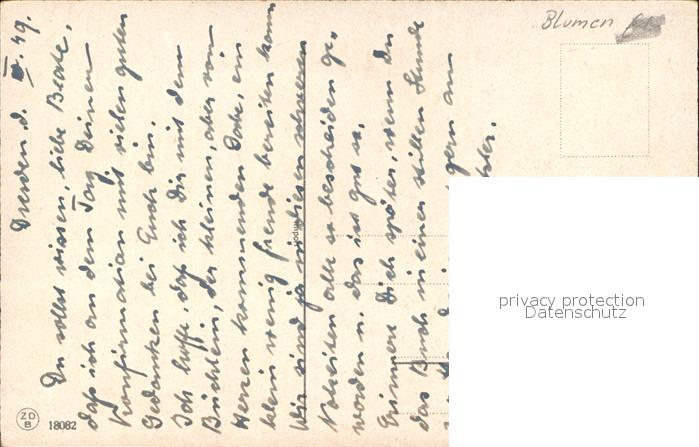 Dresden d. IV. 49.
Du sollst wissen, liebe Beate,
daß ich an dem Tag Deiner
Konfirmation mit vielen guten
Gedanken bei Euch bin.
Ich hoffe, daß ich Dir mit dem
Büchlein, der kleinen, aber von
Herzen kommenden Gabe, ein
klein wenig Freude bereiten kann
Wir sind ja in diesen schweren
Notzeiten alle so bescheiden ge-
worden u. das ist gut so.
Erinnere Dich später, wenn Du
das Buch in einer stillen Stunde
gern an
Blumen
ZD
B
18082
privacy protection
Datenschutz